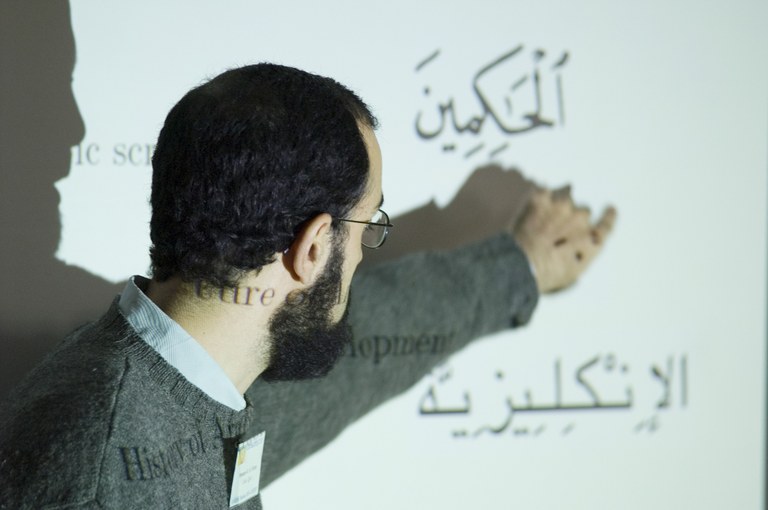 ٱلْحَاكِمِينَ
ic scr
ture of
lopment
الإِنْكْلِيزِيَّة
History of Ar